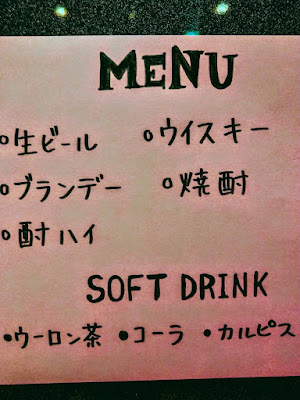 MENU
○生ビール ○ウイスキー
○ブランデー ○焼酎
○酎ハイ
SOFT DRINK
●ウーロン茶 ●コーラ ●カルピス